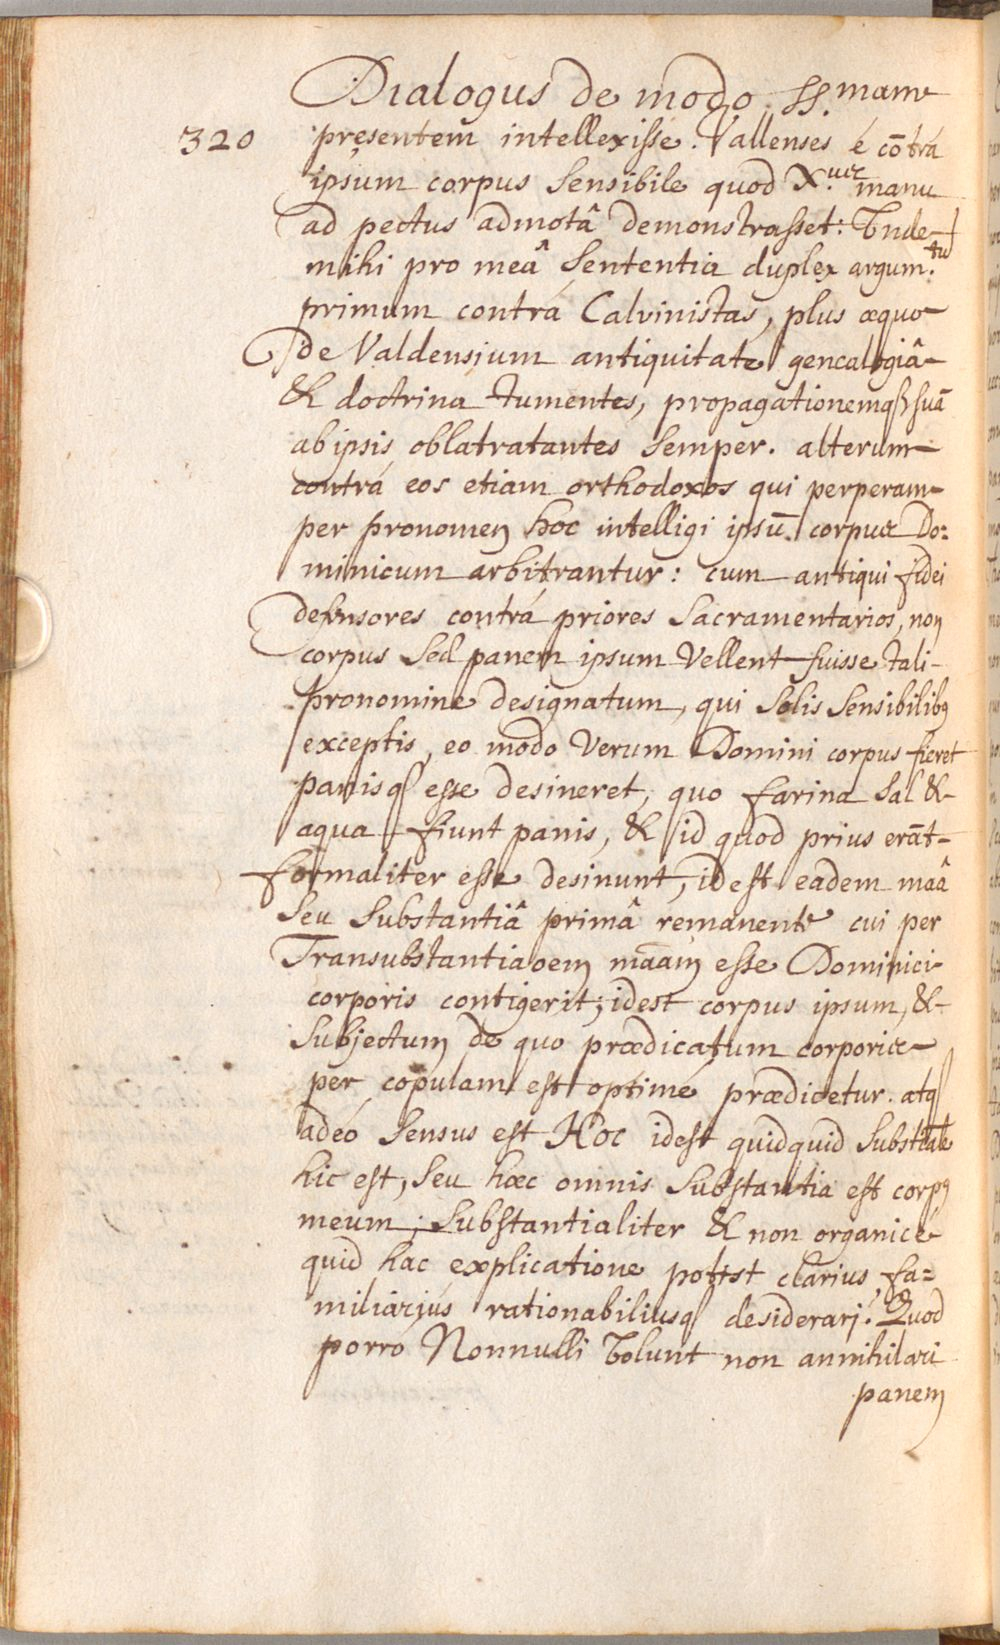 Dialogus de modo SS.mam
320 pręsentem intellexisse. Vallenses é cōtrá
ipsum corpus sensibile quod X.us manu
ad pectus admotâ demonstrasset: Unde
mihi pro meâ sententia duplex argum.tu
primum contrá Calvinistas, plus æquo
de Valdensium antiquitate genealogiâ
& doctrina tumentes, propagationemq suā
ab ipsis oblatratantes semper. alterum
contrá eos etiam orthodoxos qui perperam
per pronomen hoc intelligi ipsū corpus Do:
minicum arbitrantur: cum antiqui fidei
defensores contrá priores Sacramentarios, non
corpus sed panem ipsum vellent fuisse tali
pronomine designatum, qui solis sensibilibq
exceptis, eo modo verum Domini corpus fieret
panisq esse desineret, quo farina sal &
aqua fiunt panis, & id quod prius erāt
formaliter esse desinunt, idest eadem maâ
seu substantiâ primâ remanente cui per
Transubstantiaoem maām esse Dominici
corporis contigerit; idest corpus ipsum, &
subjectum de quo prædicatum corporis
per copulam est optimé prædicetur. atq
adeó sensus est Hoc idest quidquid substiāle
hic est, seu hæc omnis substantia est corpq
meum; substantialiter & non organicé
quid hac explicatione potest clarius, fa=
miliarius rationabiliusq desiderari? Quod
porró Nonnulli volunt non annihilari
panem